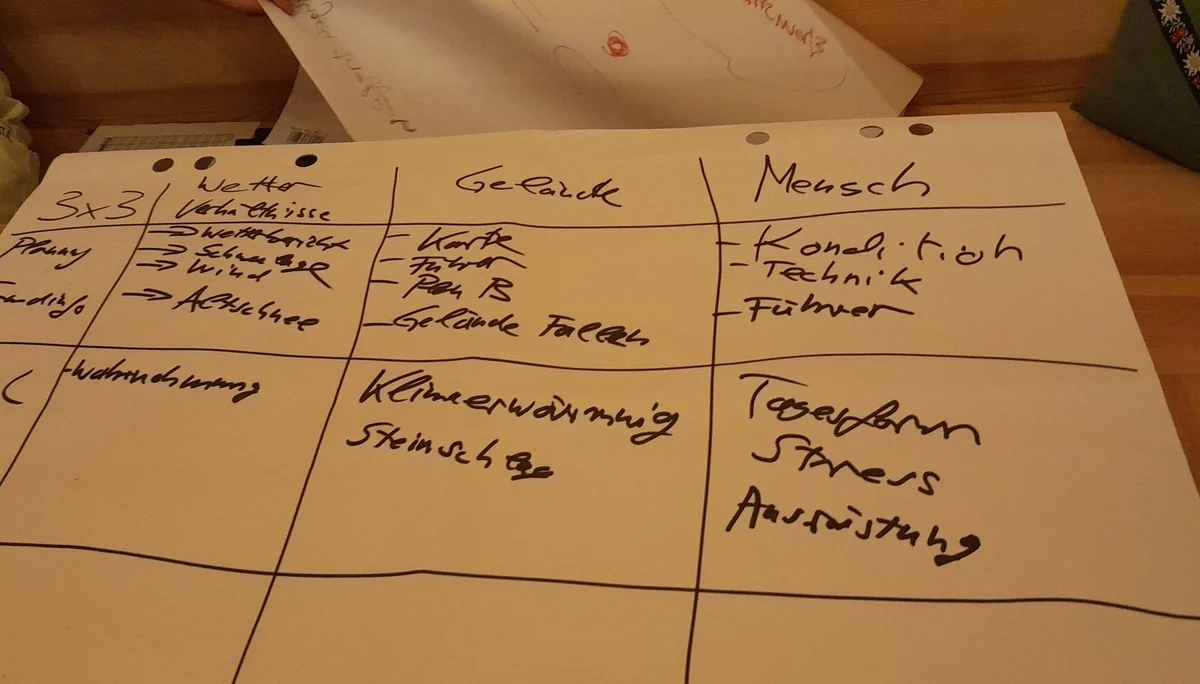 3x3
Wetter
Verhältnisse
Gelände
Mensch
Planung
→ Wetterbericht
→ Schneelage
→ Wind
→ Altschnee
- Karte
- Führer
- Gelände Fallen
- Kondition
- Technik
- Führer
- Wahrnehmung
Klimaerwärmung
Steinschlag
Tagesform
Stress
Ausrüstung